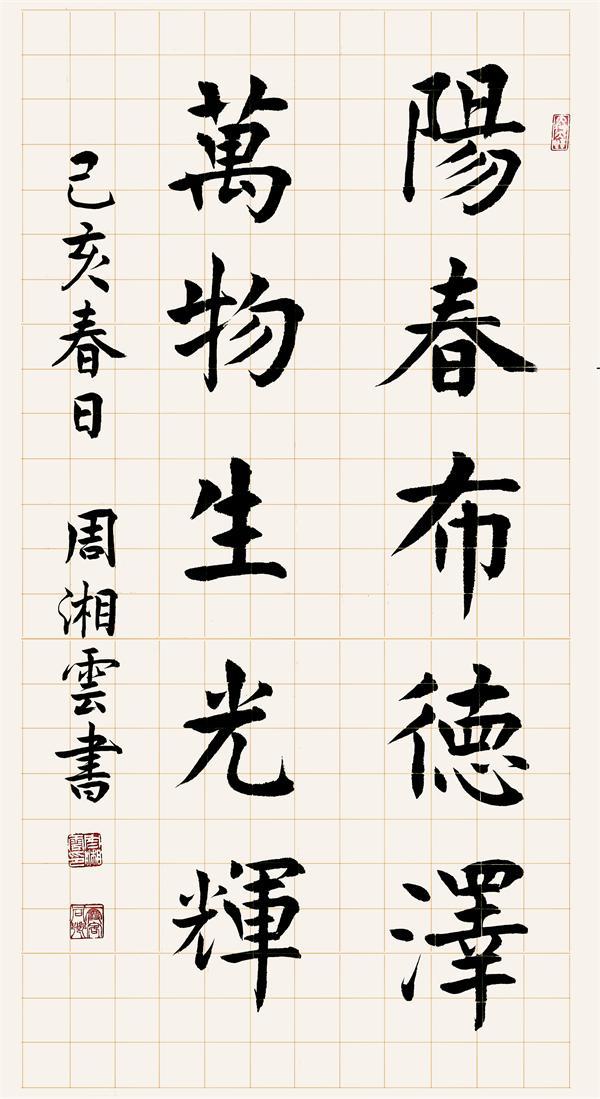 陽春布德澤
萬物生光輝
己亥春日 周湘雲書